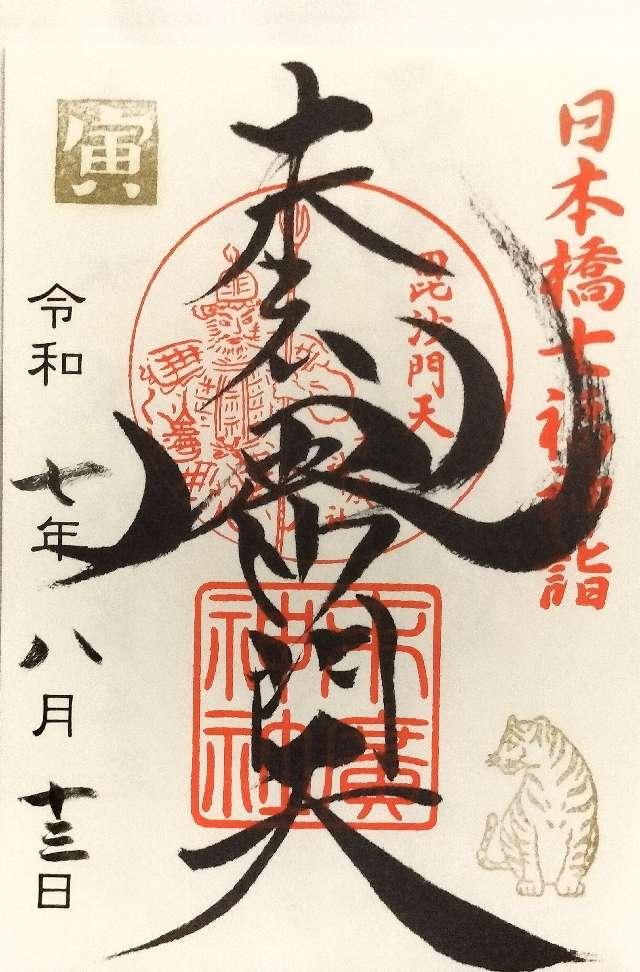 日本橋七福神詣
奉
毘沙門天
毘沙門天
末廣神社
寅
令和七年八月十三日